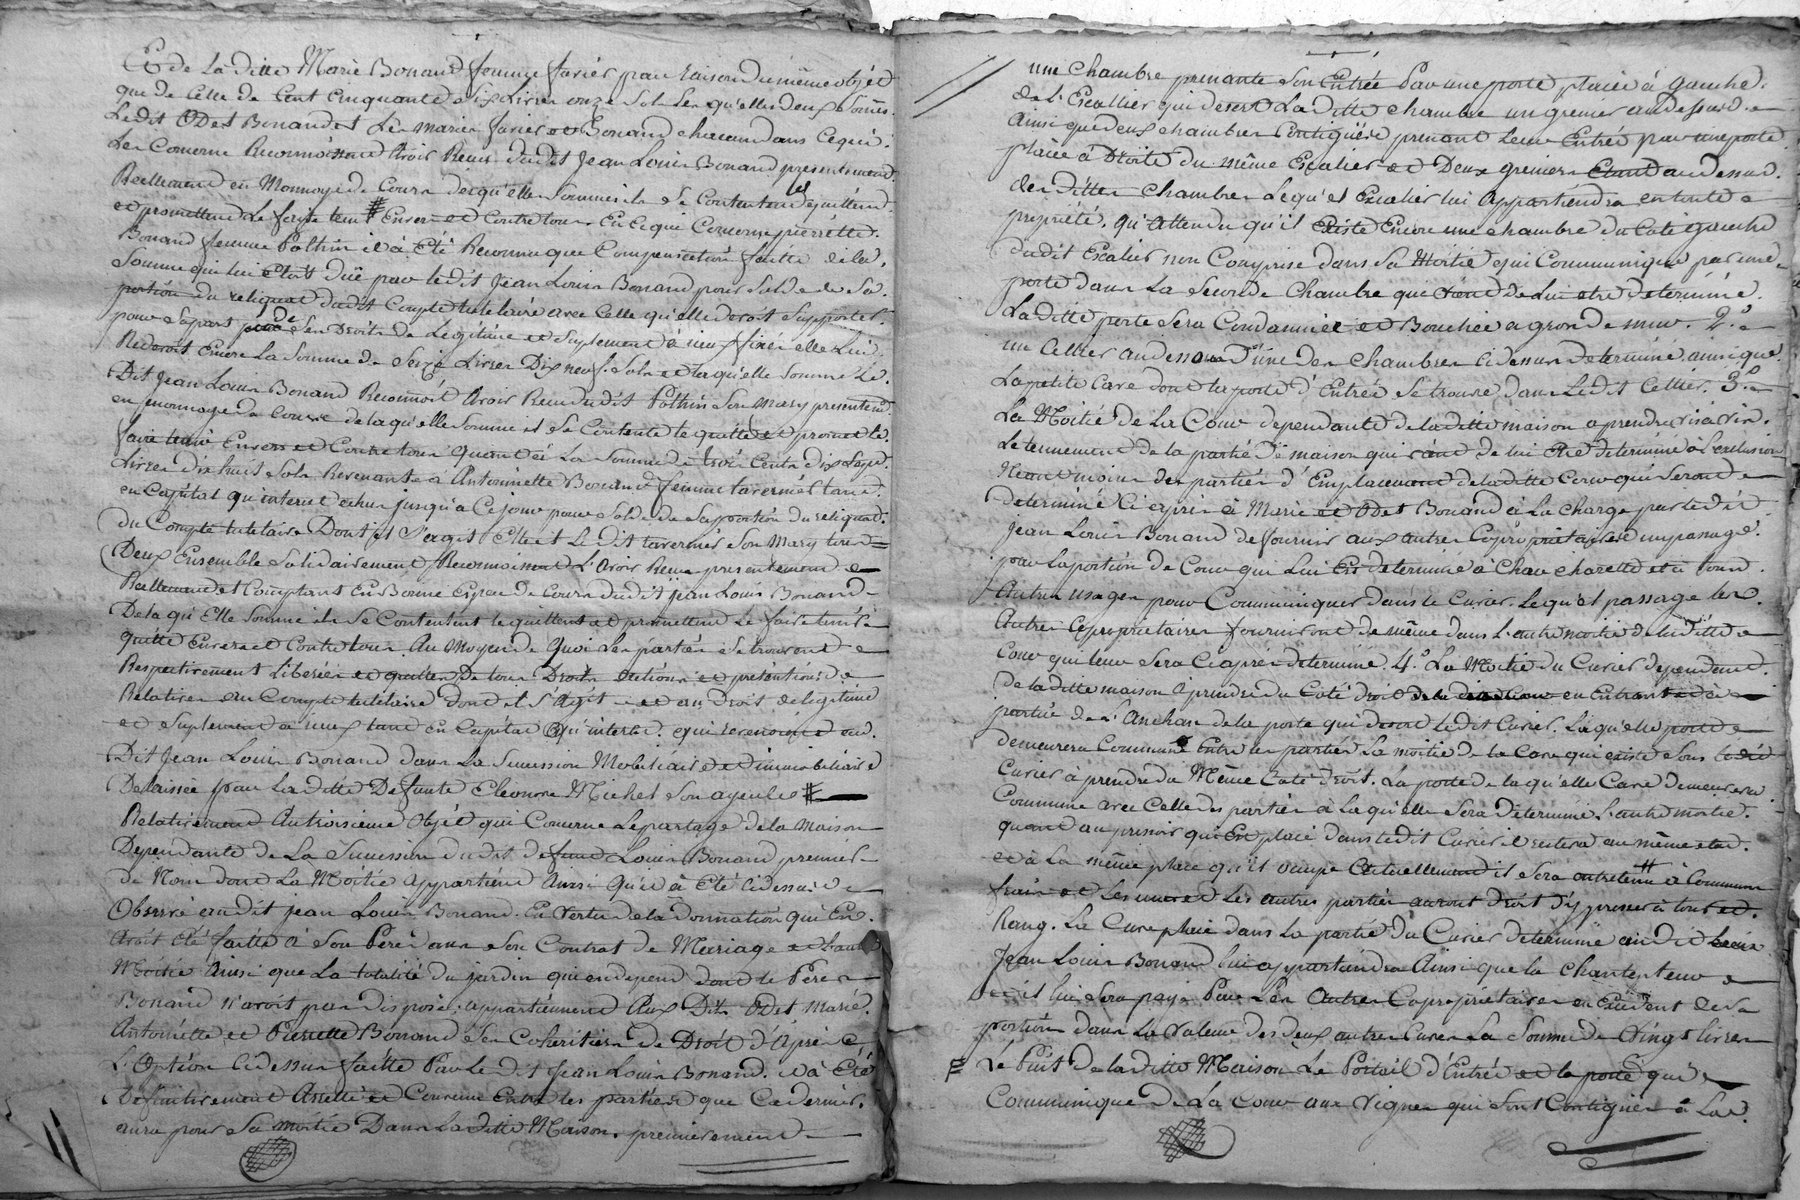 Et de La ditte Marie Bonand femme favier pour raison du même objet
que de Celle de Cent Cinquante dix Livres onze Sols Les qu'elles deux Sommes
Ledit Odet Bonand et Les Mariés favier et Bonand chacun dans Cequi
Les Concerne Reconnoissent Avoir Reçus dudit Jean Louis Bonand présentement
Reellement en Monnoye de Cours desqu'elles Sommes ils Se Contentent quittent
et promettent Le faire tenir # Envers et Contre tous. En Ce qui Concerne pierrette
Bonand femme Pothin il à Eté Reconnu que Compensation faitte de la
Somme qui lui Etoit duë par ledit Jean Louis Bonand pour Solde de Sa
portion du reliquat dudit Compte tutelaire avec Celle qu'elle devoit Supporter
pour Sa part de Ses Droits de Légitime et Suplement d'icelle fixés elle Lui
Redevoit Encore La Somme de Seize Livres Dix neuf Sols et laqu'elle Somme Le
Dit Jean Louis Bonand Reconnoit Avoir Reçu dudit Pothin Son Mary presentement
en monnoye de Cours de laqu'elle Somme il Se Contente le quitte et promet le
faire tenir Envers et Contre tous Quant à La Somme de trois Cents dix Sept
Livres dix huit Sols Revenante à Antoinette Bonand femme tavernier tant
en Capital qu'interet echus jusqu'à Ce jour pour Solde de Sa portion du reliquat
du Compte tutelaire Dont il S'agit Elle et Le dit tavernier Son Mary tous
Deux Ensemble Solidairement Reconnoissent L'Avoir Reçu presentement
Reellement et Comptant En Bonne Espece de Cours dudit jean Louis Bonand
De laqu'Elle Somme ils Se Contentent le quittent et promettent Le faire tenir
quitte Envers et Contre tous. Au Moyen de Quoi Les parties Se trouvent
Respectivement Liberées et quittes De tous Droits Actions et prétentions
Relatives au Compte tutelaire dont il S'Agit et au Droit de legitime
et Suplement d'icelle tant En Capital Qu'interet. qui revenoient au
Dit Jean Louis Bonand dans La Succession Mobiliaire et immobiliaire
Delaissée par La ditte Defunte Eleonore Michel Son ayeule #
Relativement Autroisieme Objet qui Concerne Le partage de la Maison
Dependante De La Succession du dit defunt Louis Bonand premier
de Nom dont La Moitié appartient Ainsi Qu'il à Eté Cidessus
Observé audit Jean Louis Bonand. En Vertu de la Donnation qui En
Avoit Eté faitte à Son Pere dans Son Contrat de Mariage et L'autre
Moitié Ainsi que La totalité du jardin qui en depend dont le Père
Bonand n'avoit pas disposé: appartiennent Aux Dits Odet Marie
Antoinette et Pierrette Bonand Ses Coheritiers de Droit d'Après
L'Option Cidessus faitte Par Le dit Jean Louis Bonand. il à Eté
Definitivement Arretté et Convenu Entre les parties que Ce dernier
aura pour Sa moitié Dans La ditte Maison. premierement
une Chambre prenante Son Entrée Par une porte placée à gauche
de L'Escallier qui desert La ditte chambre un grenier au dessus
Ainsi que deux chambres Contiguëes prenant Leur Entrée par une porte
placée à Droite du même Escalier et Deux greniers Etant au dessus
des dittes chambres Lequ'el Escalier lui Appartiendra en toute
proprieté. qu'Attendu qu'il Existe Encore une chambre du Coté gauche
dudit Escalier non Comprise dans Sa Moitié qui Communique par une
porte dans La Seconde Chambre qui vient De Lui etre determiné.
La ditte porte Sera Condamnée et Bouchée a gros de mur. 2.°
un Cellier au dessous D'une des chambres Cidessus determiné ainsi que
La petite Cave dont la porte d'Entrée Se trouve dans Ledit Cellier. 3.°
La Moitié de La Cour dependante de la ditte maison a prendre vis à vis
Le tennement de la partie De maison qui vient de lui Etre determiné à L'exclusion
Neanmoins des parties d'Emplacement de la ditte Cour qui Seront
determiné Ci après à Marie et Odet Bonand à La charge par ledit
Jean Louis Bonand de fournir aux autres Copropriétaires un passage
pour La portion de Cour qui Lui Est determiné à Char charette et à tous
Autres usages pour Communiquer dans le Cuvier. Lequ'el passage les
Autres Copropriétaires fourniront de même dans L'autre moitié de la ditte
Cour qui leur Sera Ciaprès determiné. 4.° La Moitié du Cuvier dependant
de la ditte maison à prendre du Coté droit en Entrant et à
partir de L'Anchan de la porte qui desert ledit Cuvier. La qu'elle porte
demeurera Commune Entre les parties La moitié de la Cave qui existe Sous ledit
Cuvier à prendre du Même Coté Droit. La porte de la qu'elle Cave demeurera
Commune avec Celle des parties à La qu'elle Sera determiné L'autre moitié.
quant au pressoir qui Est placé dans ledit Cuvier il restera au même etat
et à La même place qu'il occupe Actuellement il Sera entretenu # à Communs
frais et Les unes et Les Autres parties auront droit d'y presser à tour et
Rang. La Cuve placée dans la partie du Cuvier determiné audit
Jean Louis Bonand lui appartiendra Ainsi que la Chantepleur
et il lui Sera payé Par Les Autres Copropriétaires en Excédent de Sa
portion dans La Valeur des deux autres Cuves La Somme de Vingt livres
Le Puit de la ditte Maison Le Portail d'Entrée et la porte qui
Communique De La Cour aux Vignes qui Sont Contiguës à La